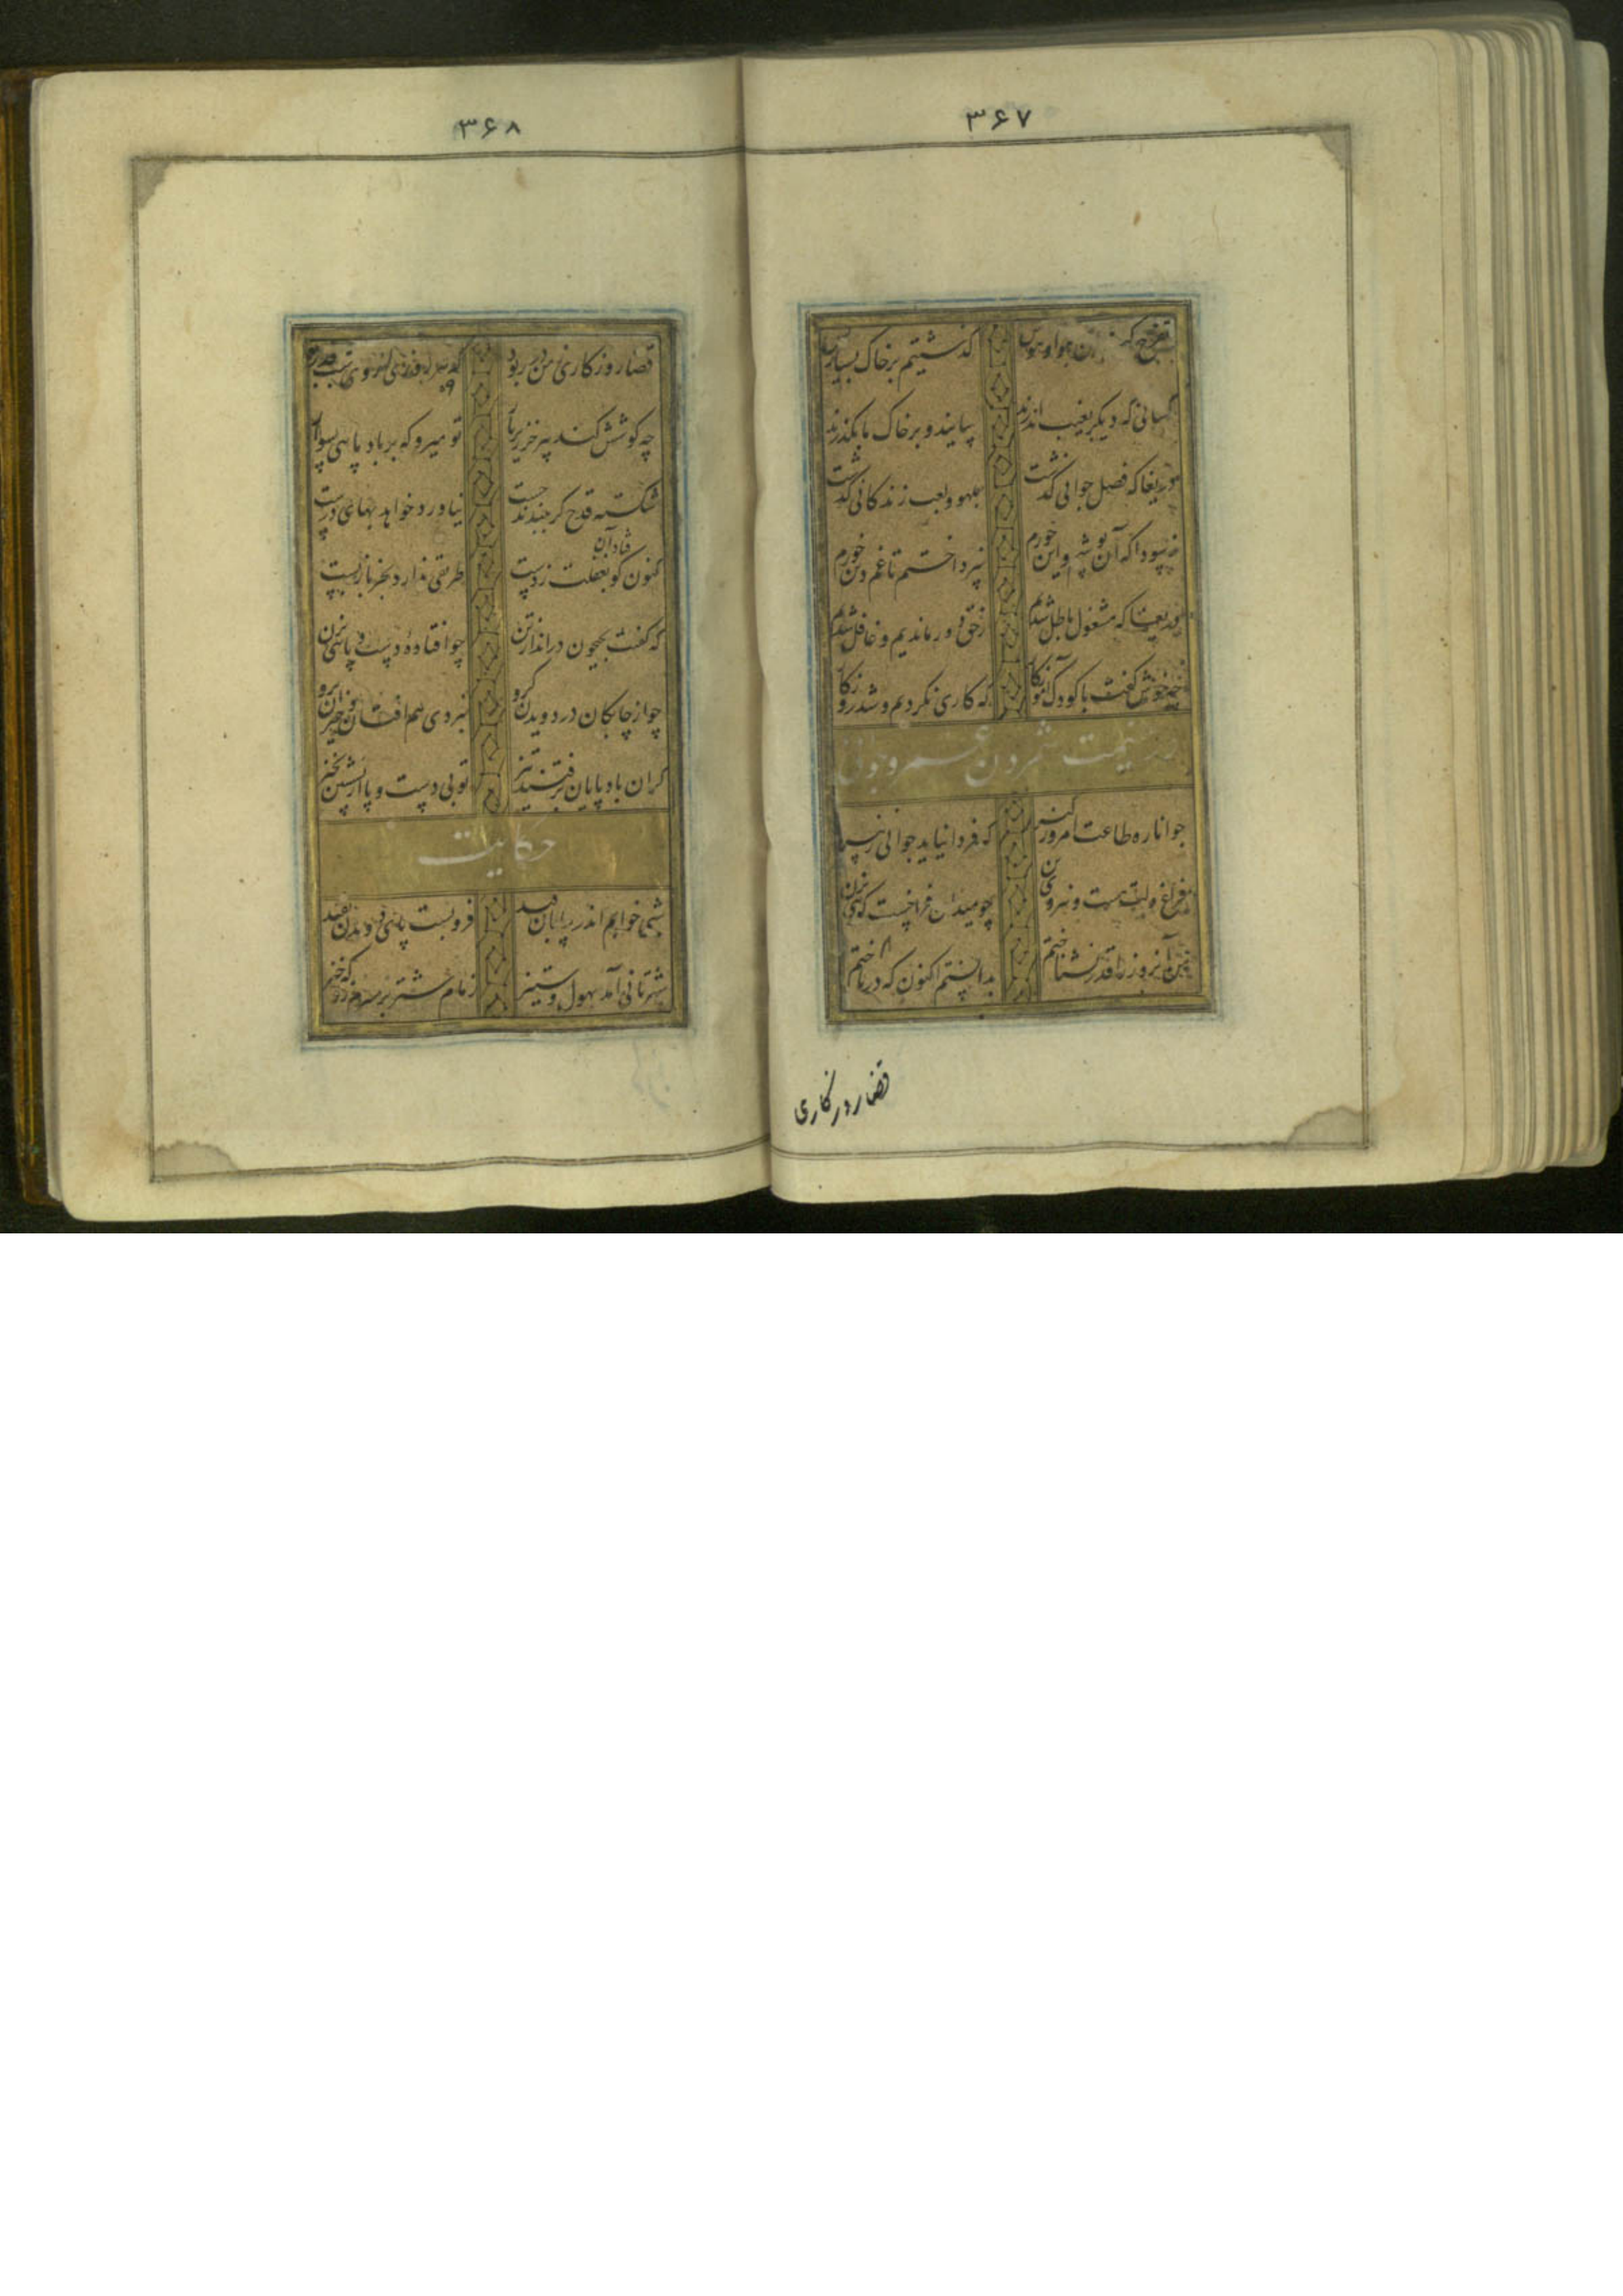 ۳۶۷
تفرج کنان هوا و هوس گذشتیم بر خاک بسیار کس
کسانی که دیگر بغیب اندرند بیایند و بر خاک ما بگذرند
دریغا که فصل جوانی گذشت بلهو و لعب زندگانی گذشت
چه سودا که آن پوشم و این خورم نپرداختم تا غم دین خورم
دریغا که مشغول باطل شدیم ز حق دور ماندیم و غافل شدیم
چه خوش گفت با کودک آموزگار که کاری نکردیم و شد روزگار
غنیمت شمردن عمر و جوانی
جوانا ره طاعت امروز گیر که فردا نیاید جوانی ز پیر
فراغ دلت هست و نیروی تن چو میدان فراخست گویی بزن
من آنروز را قدر نشناختم بدانستم اکنون که درباختم
قضا روزگاری
۳۶۸
قضا روزگاری ز من در ربود که هر روزی از وی شب قدر بود
چه کوشش کند پیر خر زیر بار تو میرو که بر باد پایی سوار
شکسته قدح گر ببندند چست نیاورد خواهد بهای درست
فتاد آن
کنون کو بغفلت ز دست طریقی ندارد بجز باز بست
که گفت بجیحون در انداز تن چو افتاده دست و پایی بزن
چو از چابکان در دویدن گرو نبردی هم افتان و خیزان برو
گر آن باد پایان برفتند تیز تو بی دست و پا از نشستن بخیز
حکایت
شبی خوابم اندر بیابان فید فرو بست پای دویدن بقید
شتربانی آمد بهول و ستیز زمام شتر بر سرم زد که خیز